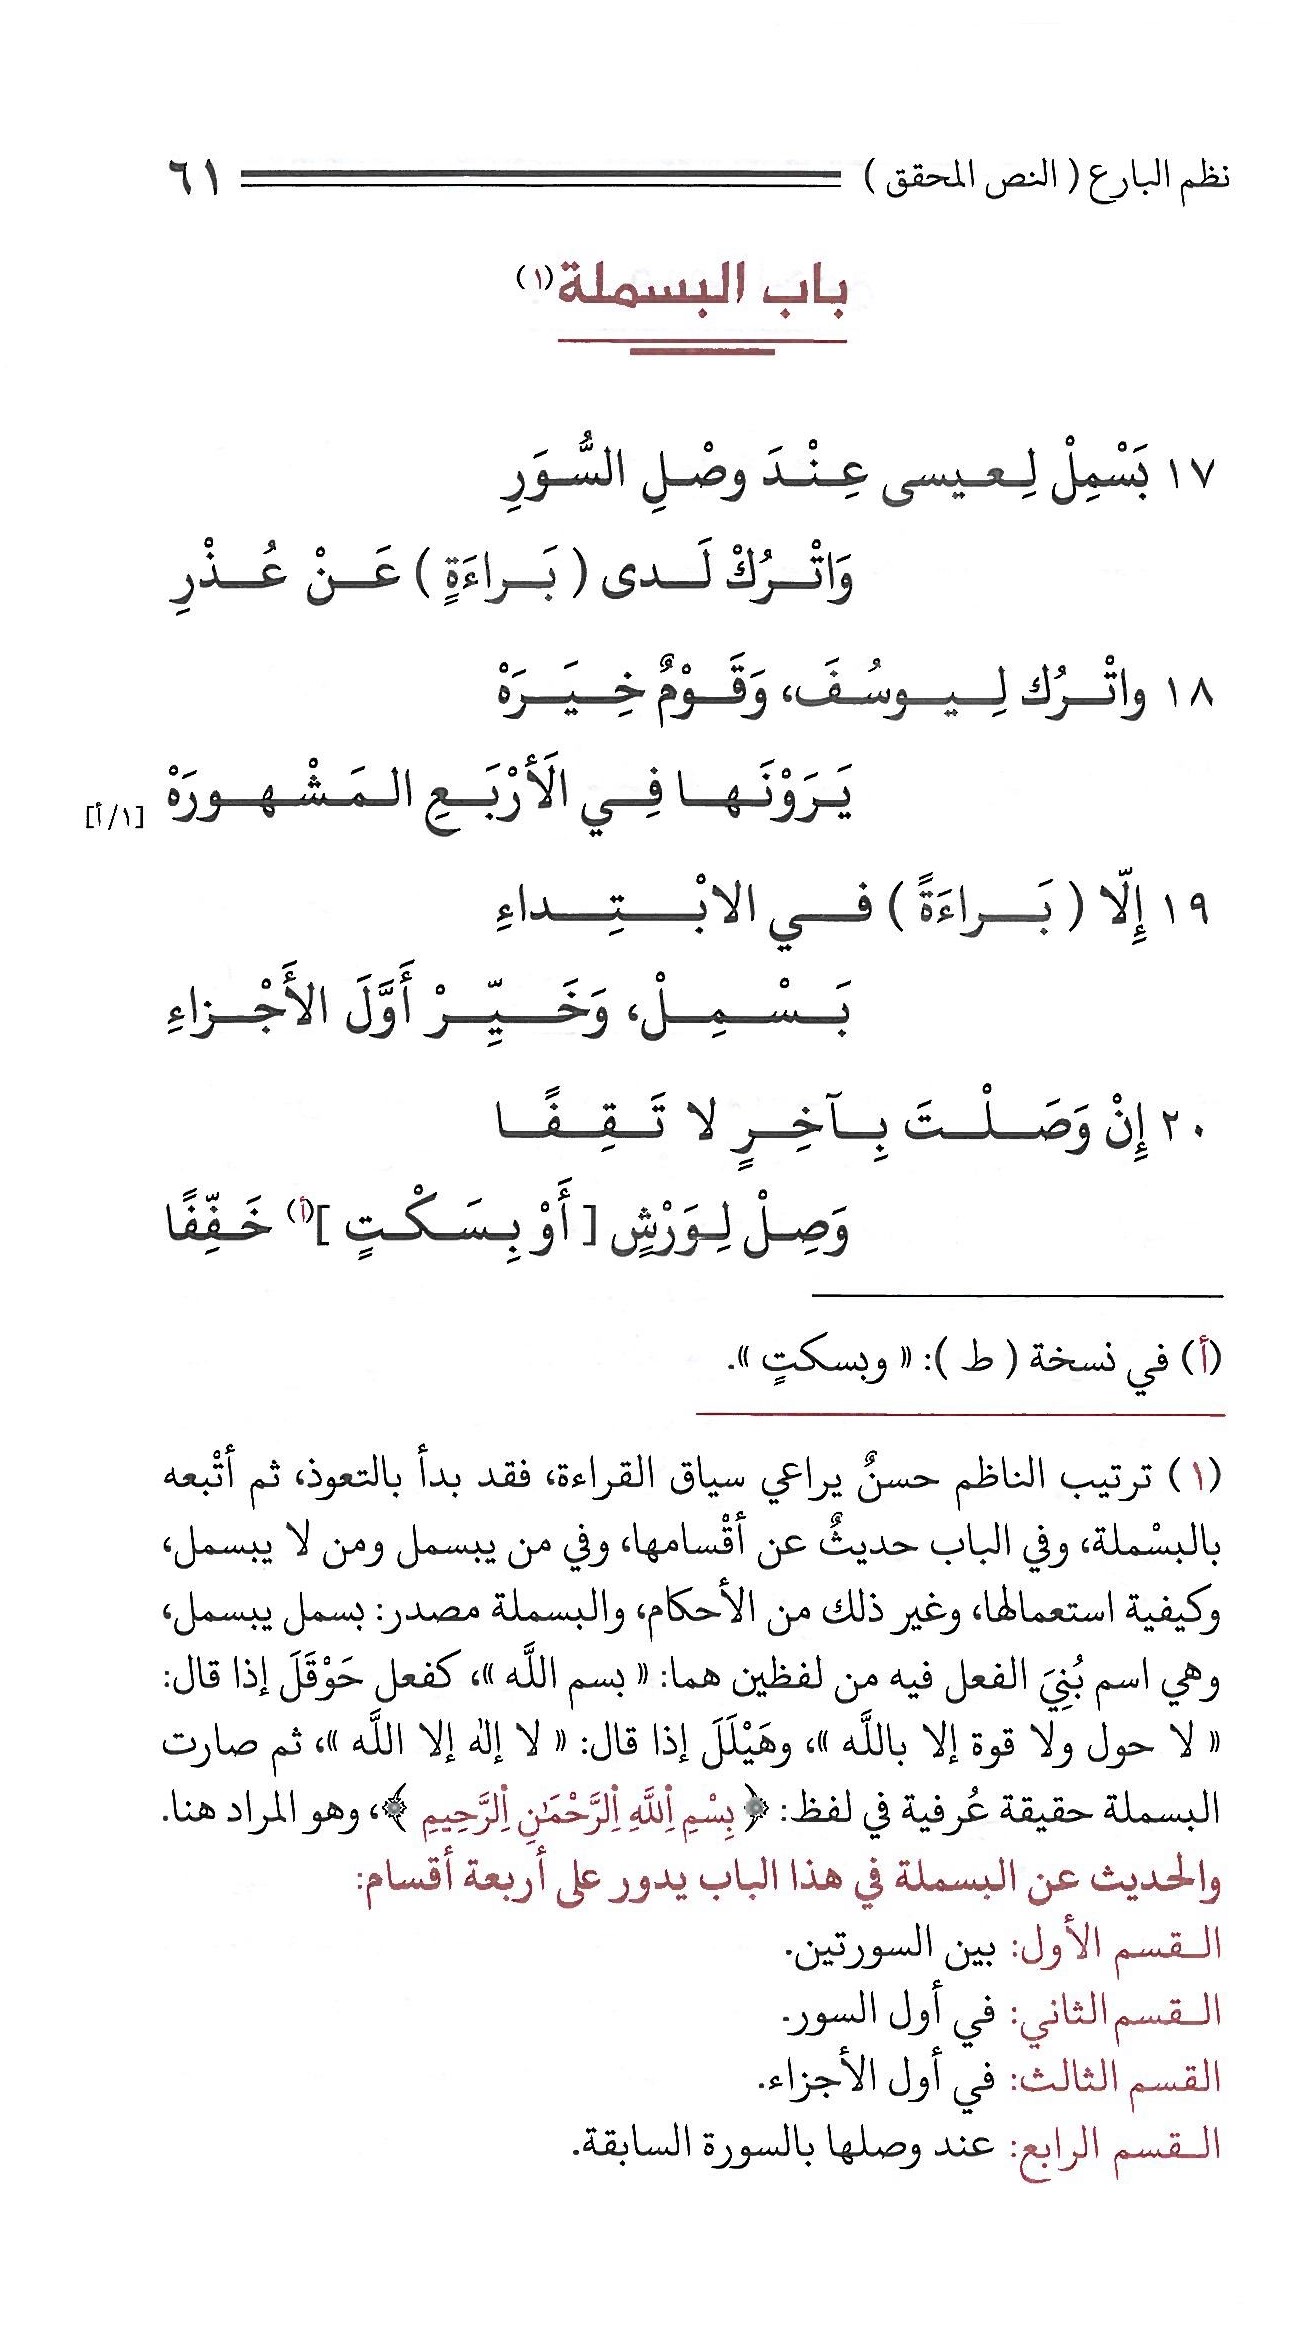 نظم البارع ( النص المحقق ) ٦١
باب البسملة(١)
١٧ بَسْمِلْ لِـعـيسى عِنْدَ وصْلِ السُّوَرِ
وَاتْرُكْ لَدى ( بَراءَةٍ ) عَنْ عُذْرِ
١٨ واتْرُك لِيوسُفَ، وَقَوْمٌ خِيَرَهْ
يَرَوْنَها فِي الَأرْبَعِ المَشْهورَهْ [١/أ]
١٩ إِلّا ( بَراءَةً ) في الابْتِداءِ
بَسْمِلْ، وَخَيِّرْ أَوَّلَ الأَجْزاءِ
٢٠ إِنْ وَصَلْتَ بِآخِرٍ لا تَقِفًا
وَصِلْ لِوَرْشٍ [ أَوْ بِسَكْتٍ ](أ) خَفِّفًا
(أ) في نسخة ( ط ): « وبسكتٍ ».
(١) ترتيب الناظم حسنٌ يراعي سياق القراءة، فقد بدأ بالتعوذ، ثم أتْبعه
بالبسْملة، وفي الباب حديثٌ عن أقْسامها، وفي من يبسمل ومن لا يبسمل،
وكيفية استعمالها، وغير ذلك من الأحكام، والبسملة مصدر: بسمل يبسمل،
وهي اسم بُنِيَ الفعل فيه من لفظين هما: « بسم اللَّه »، كفعل حَوْقَلَ إذا قال:
« لا حول ولا قوة إلا باللَّه »، وهَيْلَلَ إذا قال: « لا إله إلا اللَّه »، ثم صارت
البسملة حقيقة عُرفية في لفظ: ﴿ بِسْمِ اِ۬للَّهِ اِ۬لرَّحْمَٰنِ اِ۬لرَّحِيمِ ﴾، وهو المراد هنا.
والحديث عن البسملة في هذا الباب يدور على أربعة أقسام:
القسم الأول: بين السورتين.
القسم الثاني: في أول السور.
القسم الثالث: في أول الأجزاء.
القسم الرابع: عند وصلها بالسورة السابقة.